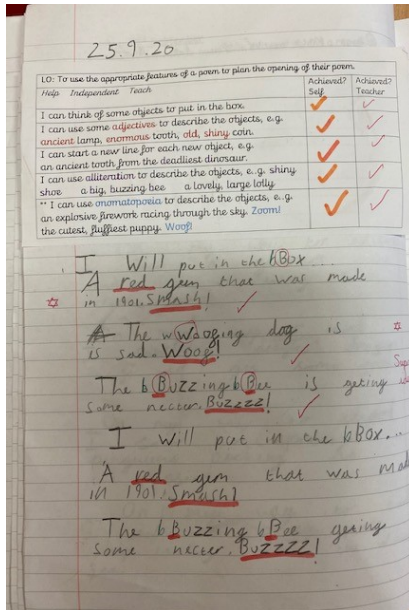 25.9.20
LO: To use the appropriate features of a poem to plan the opening of their poem.
Help Independent Teach
Achieved? Self
Achieved? Teacher
I can think of some objects to put in the box.
I can use some adjectives to describe the objects, e.g. ancient lamp, enormous tooth, old, shiny coin.
I can start a new line for each new object, e.g. an ancient tooth from the deadliest dinosaur.
I can use alliteration to describe the objects, e..g. shiny shoe a big, buzzing bee a lovely, large lolly
** I can use onomatopoeia to describe the objects, e..g. an explosive firework racing through the sky. Zoom! the cutest, fluffiest puppy. Woof!
I Will put in the bBox...
A red gem that was made
in 1901. Smash!
A The wWoofing dog is
is sad. Woof!
The bBuzzing bBee is geting
some necter. Buzzzz!
I will put in the bBox...
A red gem that was
in 1901. Smash!
The bBuzzing bBee geting
some necter. Buzzzz!